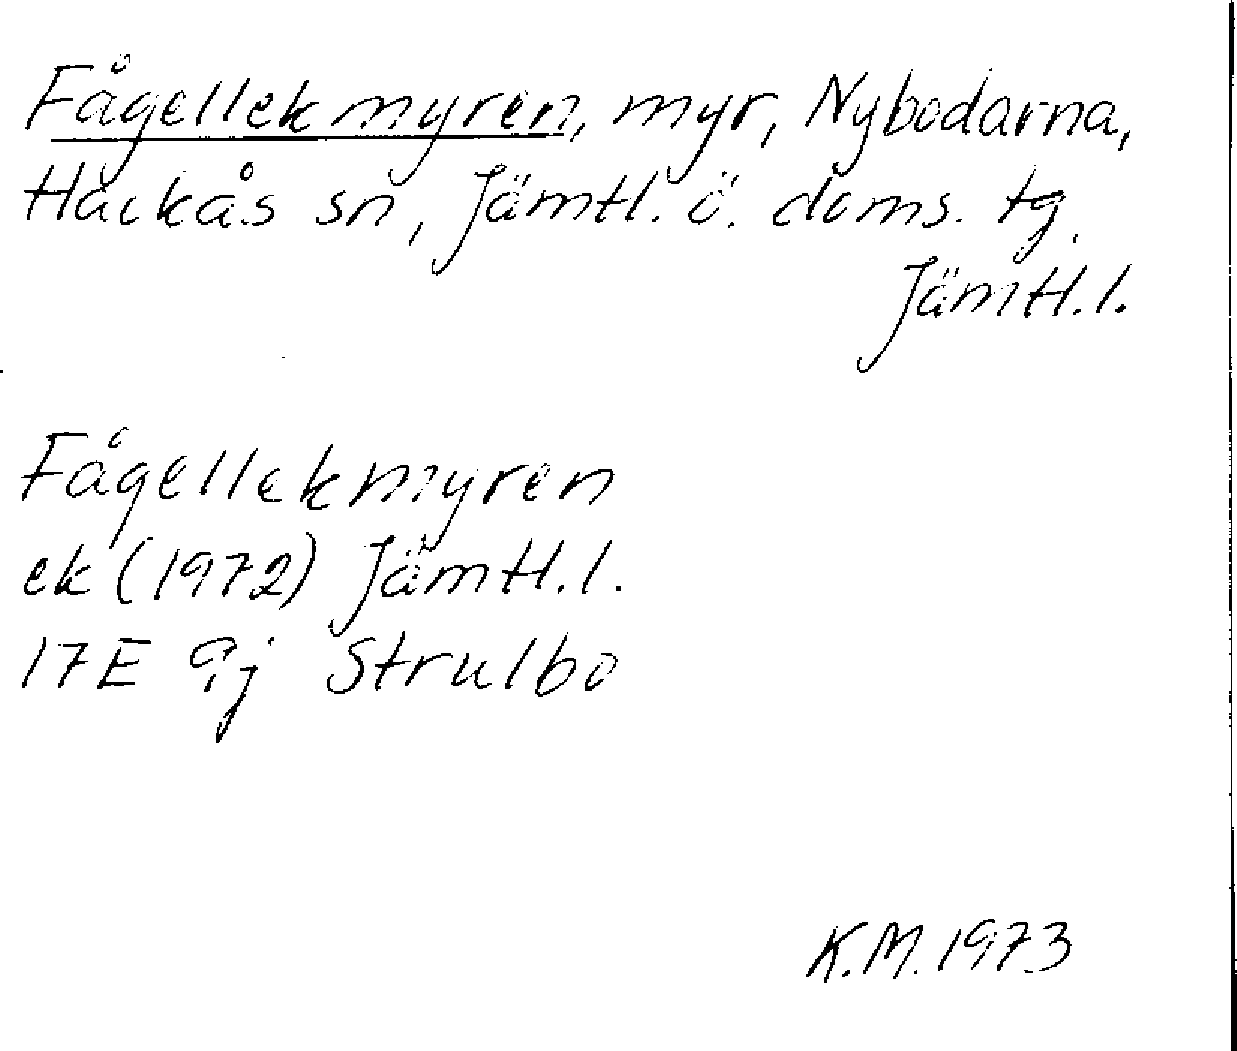 Fågellekmyren, myr, Nybodarna,
Hackås sn, Jämtl. ö. doms. tg.
Jämtl. l.
Fågellekmyren
ek (1972) Jämtl. l.
17E 9j Strulbo
K.M. 1973